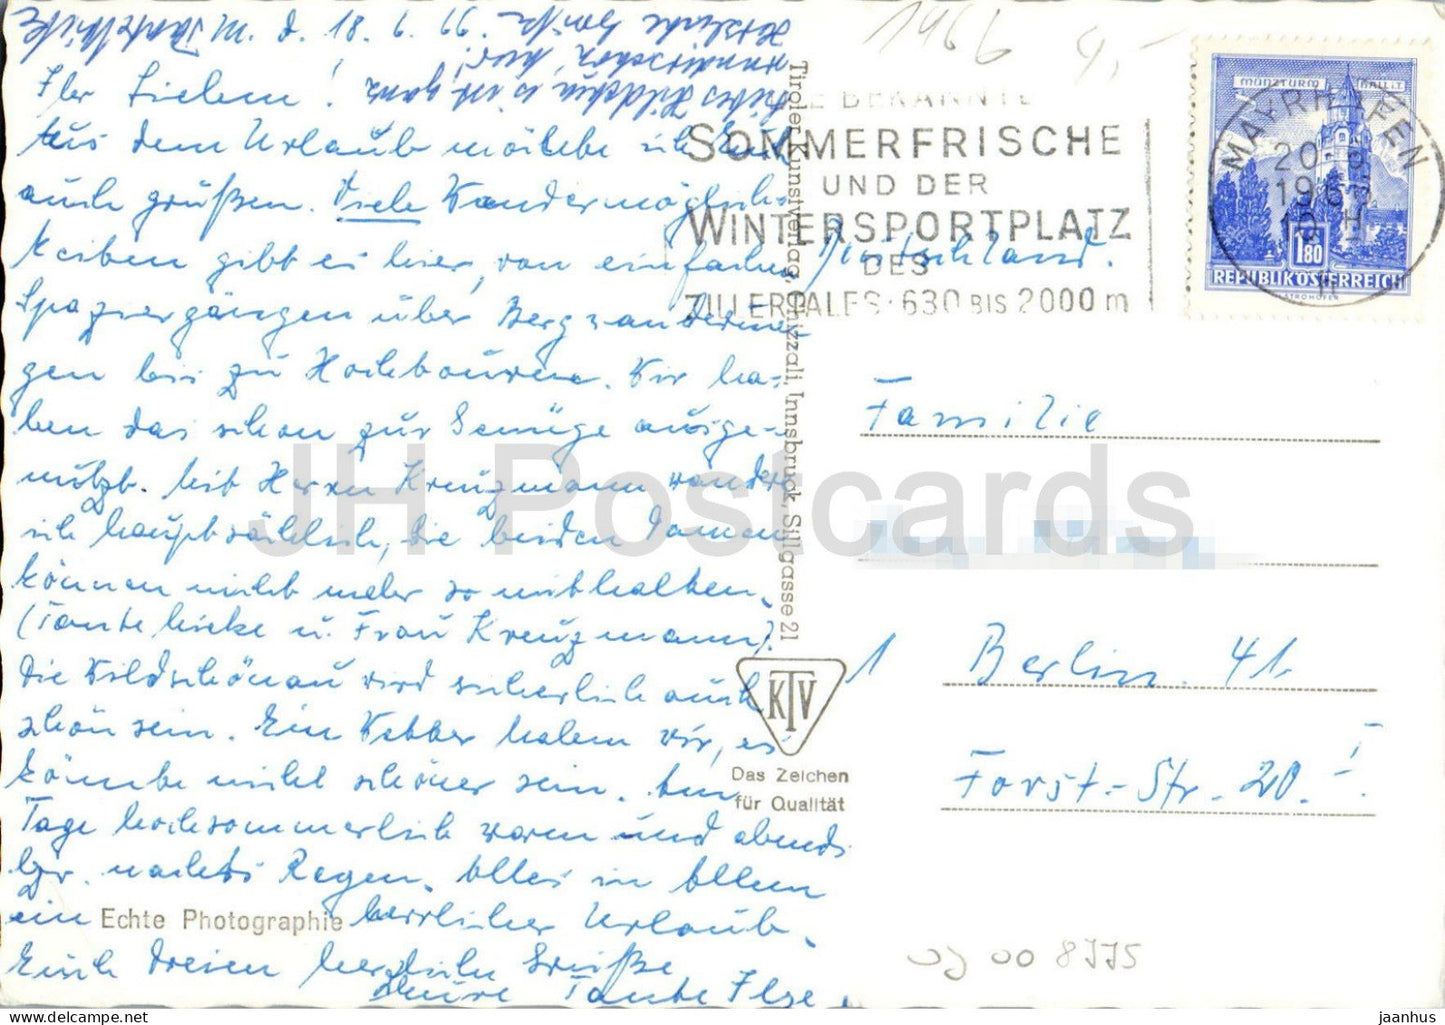 Ihr Lieben!
Aus dem Urlaub möchte ich Euch
auch grüßen. Viele Wandermöglich-
keiten gibt es hier, von einfachen
Spaziergängen über Bergwanderun-
gen bis zu Hochtouren. Wir ha-
ben das schon zur Genüge ausge-
nützt. Mit Herrn Kreuzmann wandere
ich hauptsächlich, die beiden Damen
können nicht mehr so mithalten.
(Tante u. Frau Kreuzmann).
Die Wildschönau wird sicherlich auch
schön sein. Ein Wetter haben wir, es
könnte nicht schöner sein. Am
Tage hochsommerlich warm und abends
bzw. nachts Regen. Alles in Allem
ein herrlicher Urlaub.
Euch dreien herzliche Grüße
Eure Tante Ilse.
Liebes ist ganz
wunderschön hier!
Herzliche Grüße
Echte Photographie
Tiroler Kunstverlag, Chizzali, Innsbruck, Sillgasse 21
KTV
Das Zeichen
für Qualität
1466 4,-
DIE BEKANNTE
SOMMERFRISCHE
UND DER
WINTERSPORTPLATZ
DES
ZILLERTALES · 630 BIS 2000 m
MAYRHOFEN
20
MÜNZTURM HALL I.T.
1.80
REPUBLIK ÖSTERREICH
STROHOFER
Deutschland.
Familie
1 Berlin 41
Forst-Str. 20. I
JH Postcards
jaanhus
https://www.jaanhus.com